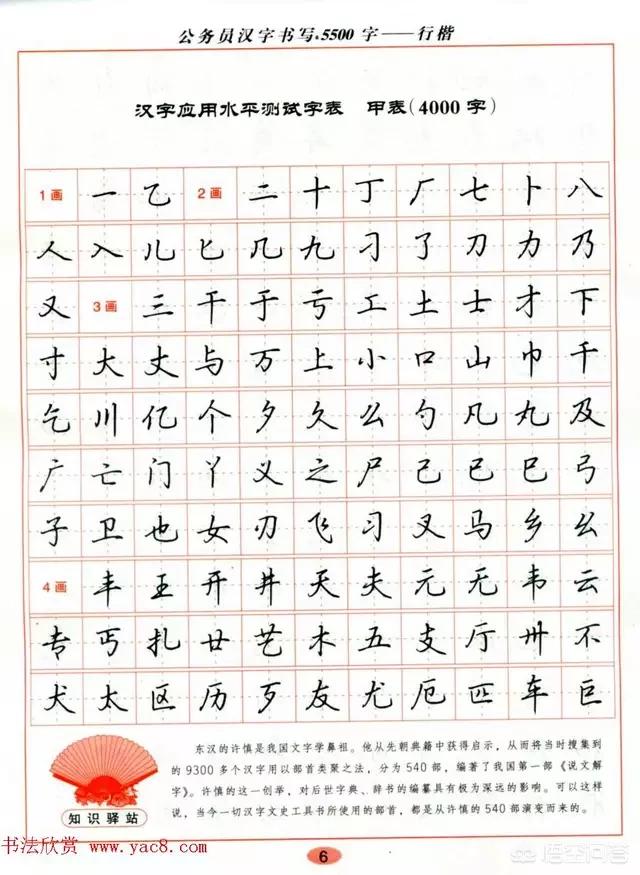 公务员汉字书写•5500字——行楷
汉字应用水平测试字表 甲表(4000字)
1画 一 乙 2画 二 十 丁 厂 七 卜 八
人 入 儿 匕 几 九 刁 了 刀 力 乃
又 3画 三 干 于 亏 工 土 士 才 下
寸 大 丈 与 万 上 小 口 山 巾 千
乞 川 亿 个 夕 久 么 勺 凡 丸 及
广 亡 门 丫 义 之 尸 己 已 巳 弓
子 卫 也 女 刃 飞 习 叉 马 乡 幺
4画 丰 王 开 井 天 夫 元 无 韦 云
专 丐 扎 廿 艺 木 五 支 厅 卅 不
犬 太 区 历 歹 友 尤 厄 匹 车 巨
东汉的许慎是我国文字学鼻祖。他从先朝典籍中获得启示，从而将当时搜集到
的9300多个汉字用以部首类聚之法，分为540部，编著了我国第一部《说文解
字》。许慎的这一创举，对后世字典、辞书的编纂具有极为深远的影响。可以这样
说，当今一切汉字文史工具书所使用的部首，都是从许慎的540部演变而来的。
知识驿站
书法欣赏 www.yac8.com
6
悟空问答